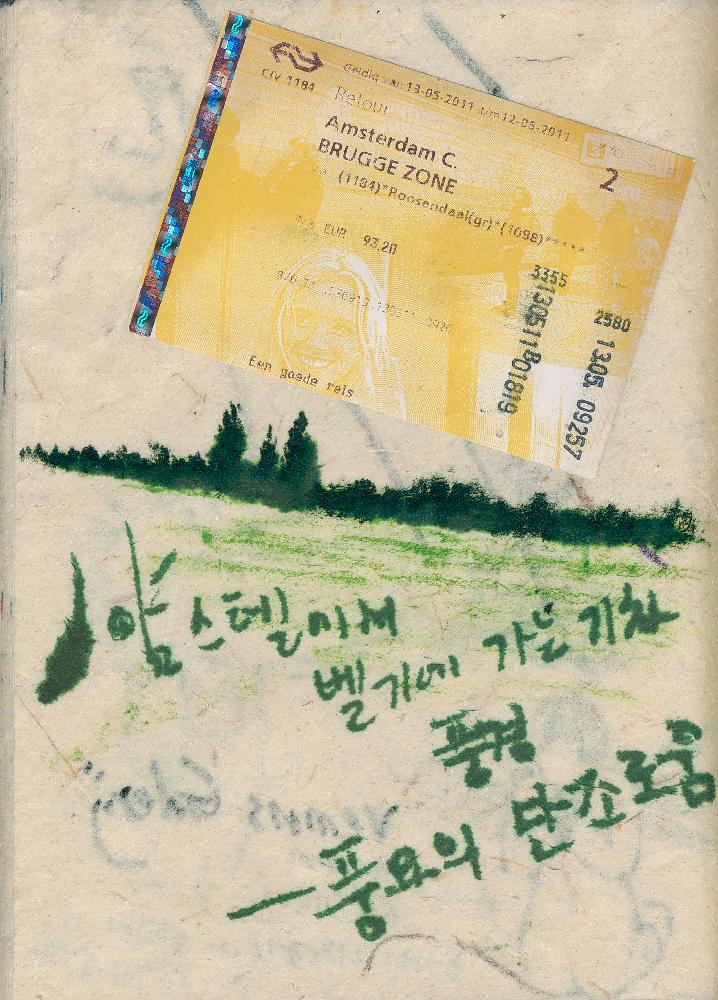 CIV 1184
Geldig van 13-05-2011 t/m 12-06-2011
Retour
Amsterdam C.
BRUGGE ZONE
2
(1184)*Roosendaal(gr)*(1098)*****
EUR 93,20
3355
130511801819
2580
13.05. 09257
Een goede reis
암스테르담에서
벨기에 가는 기차
풍경
— 풍요의 단조로움